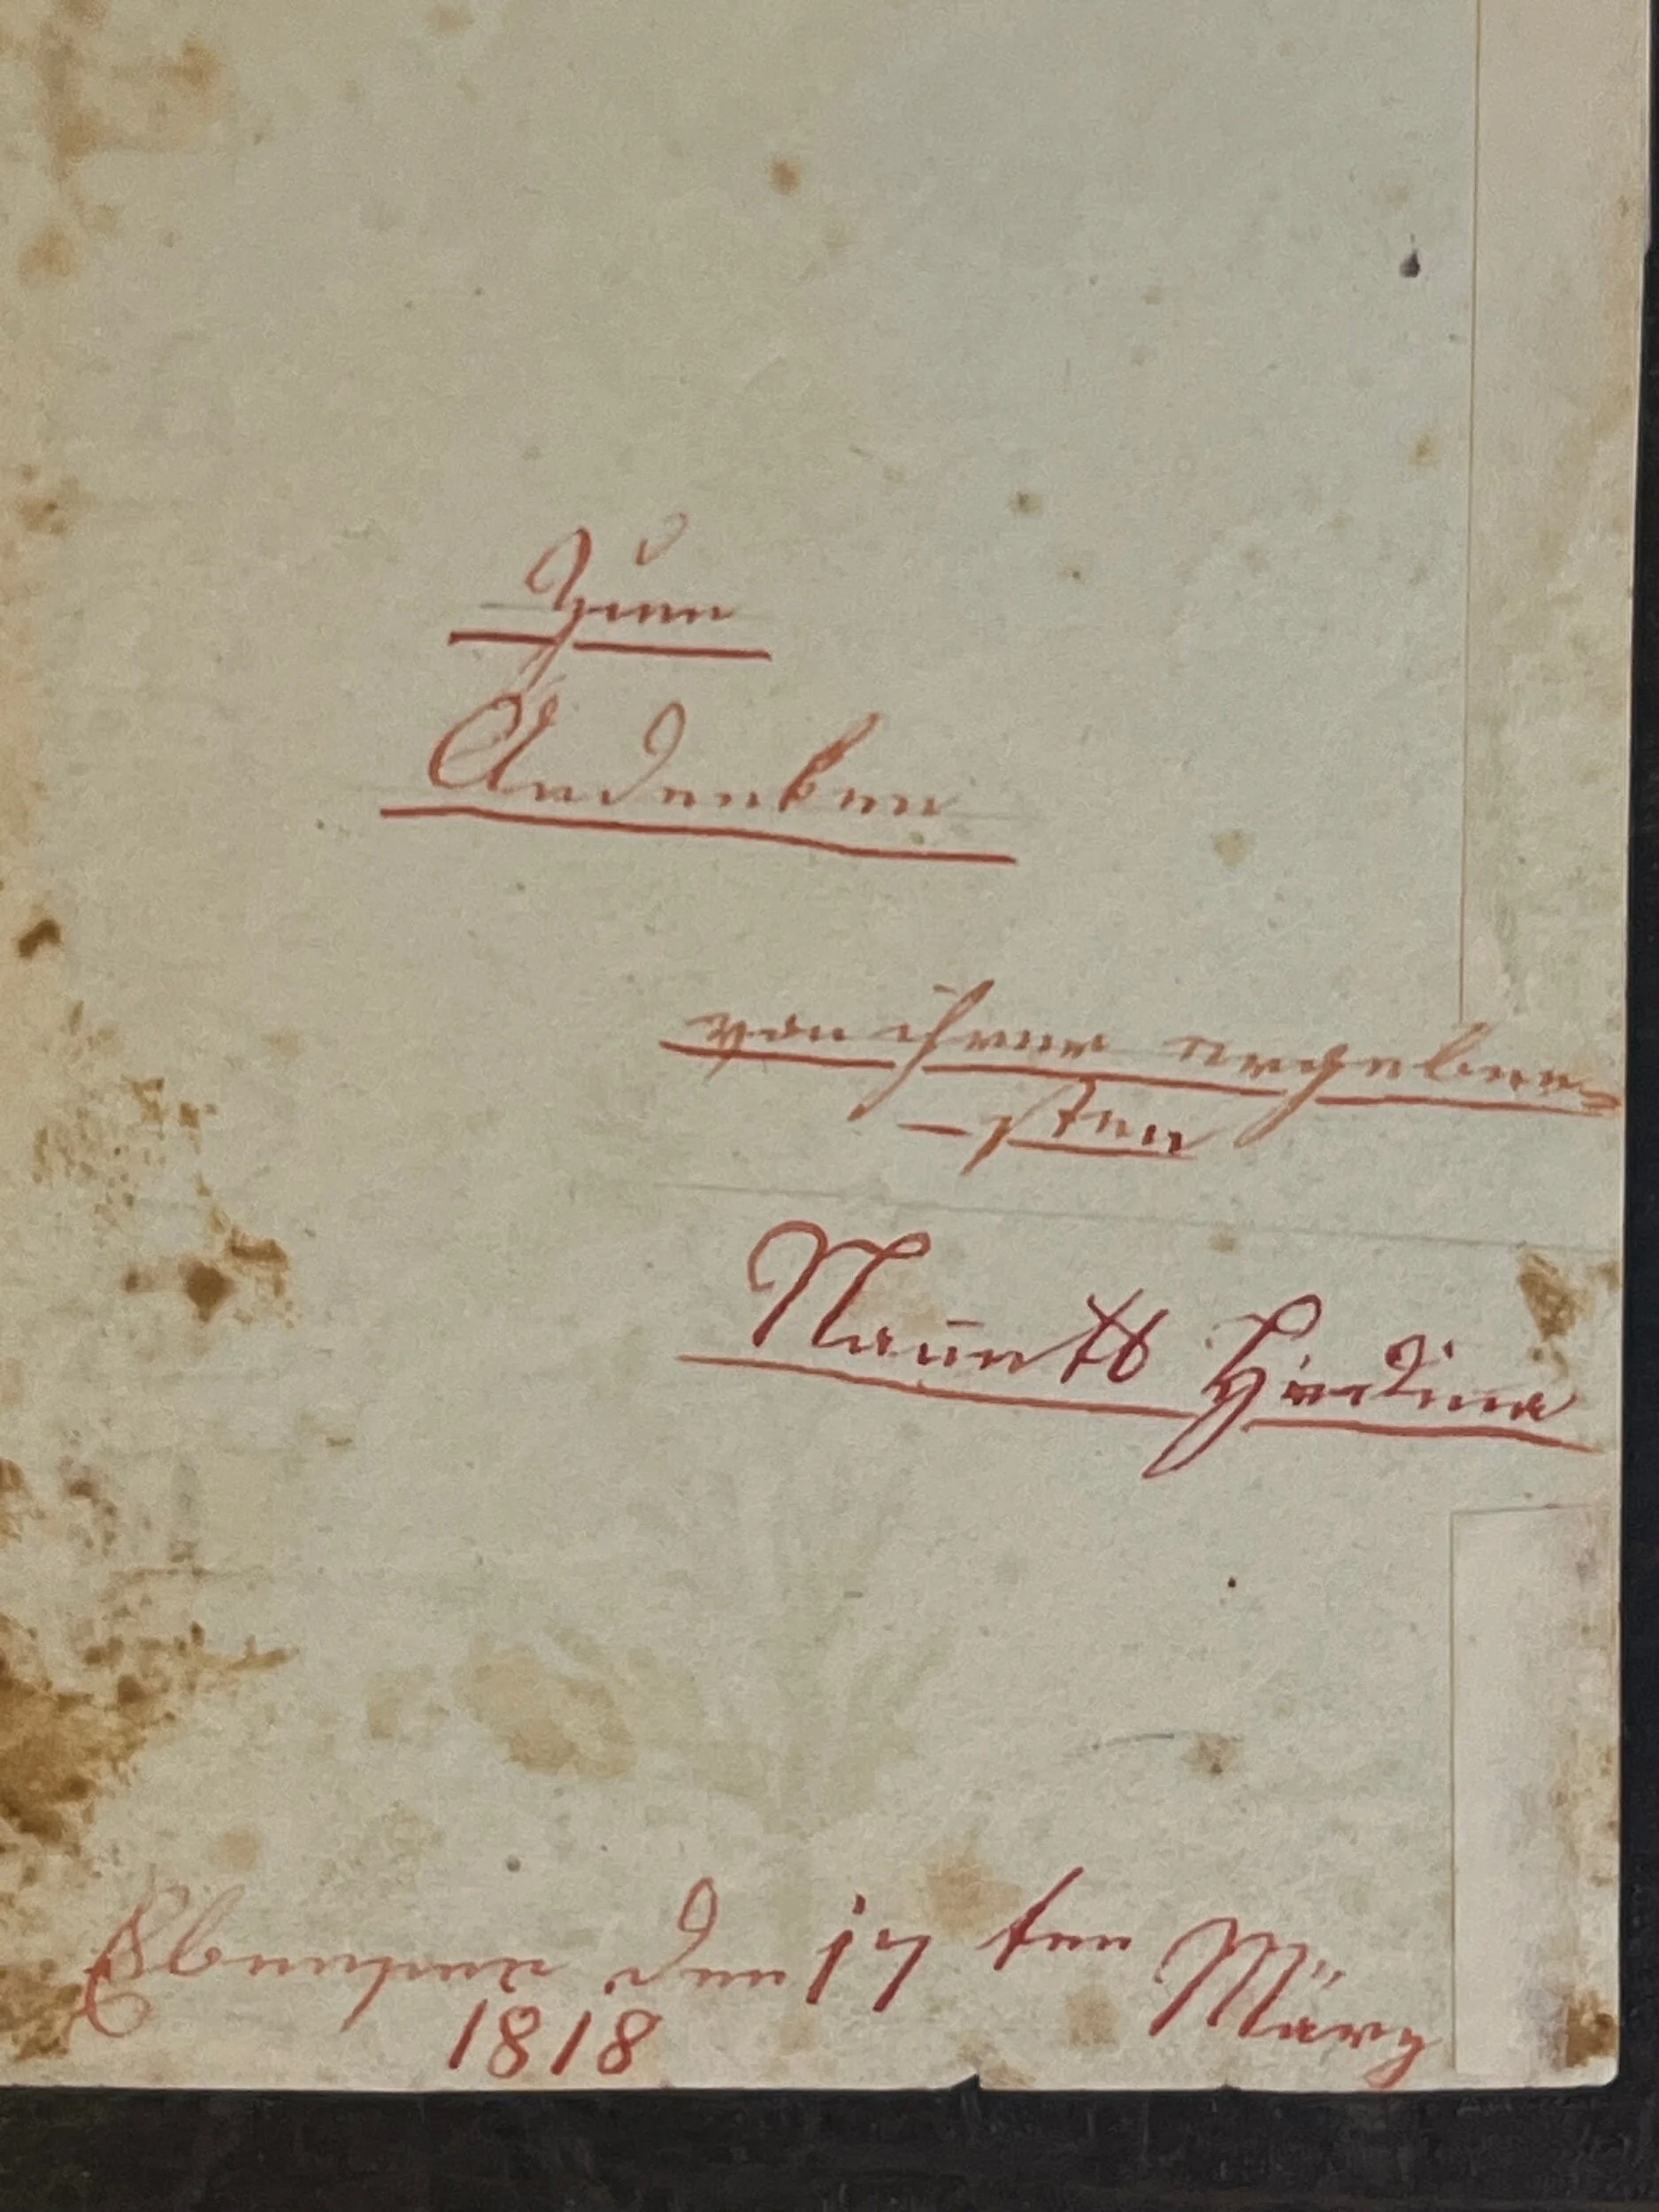 Zum
Andenken
von ihrer ergeben=
-sten
den 17 ten März
1818